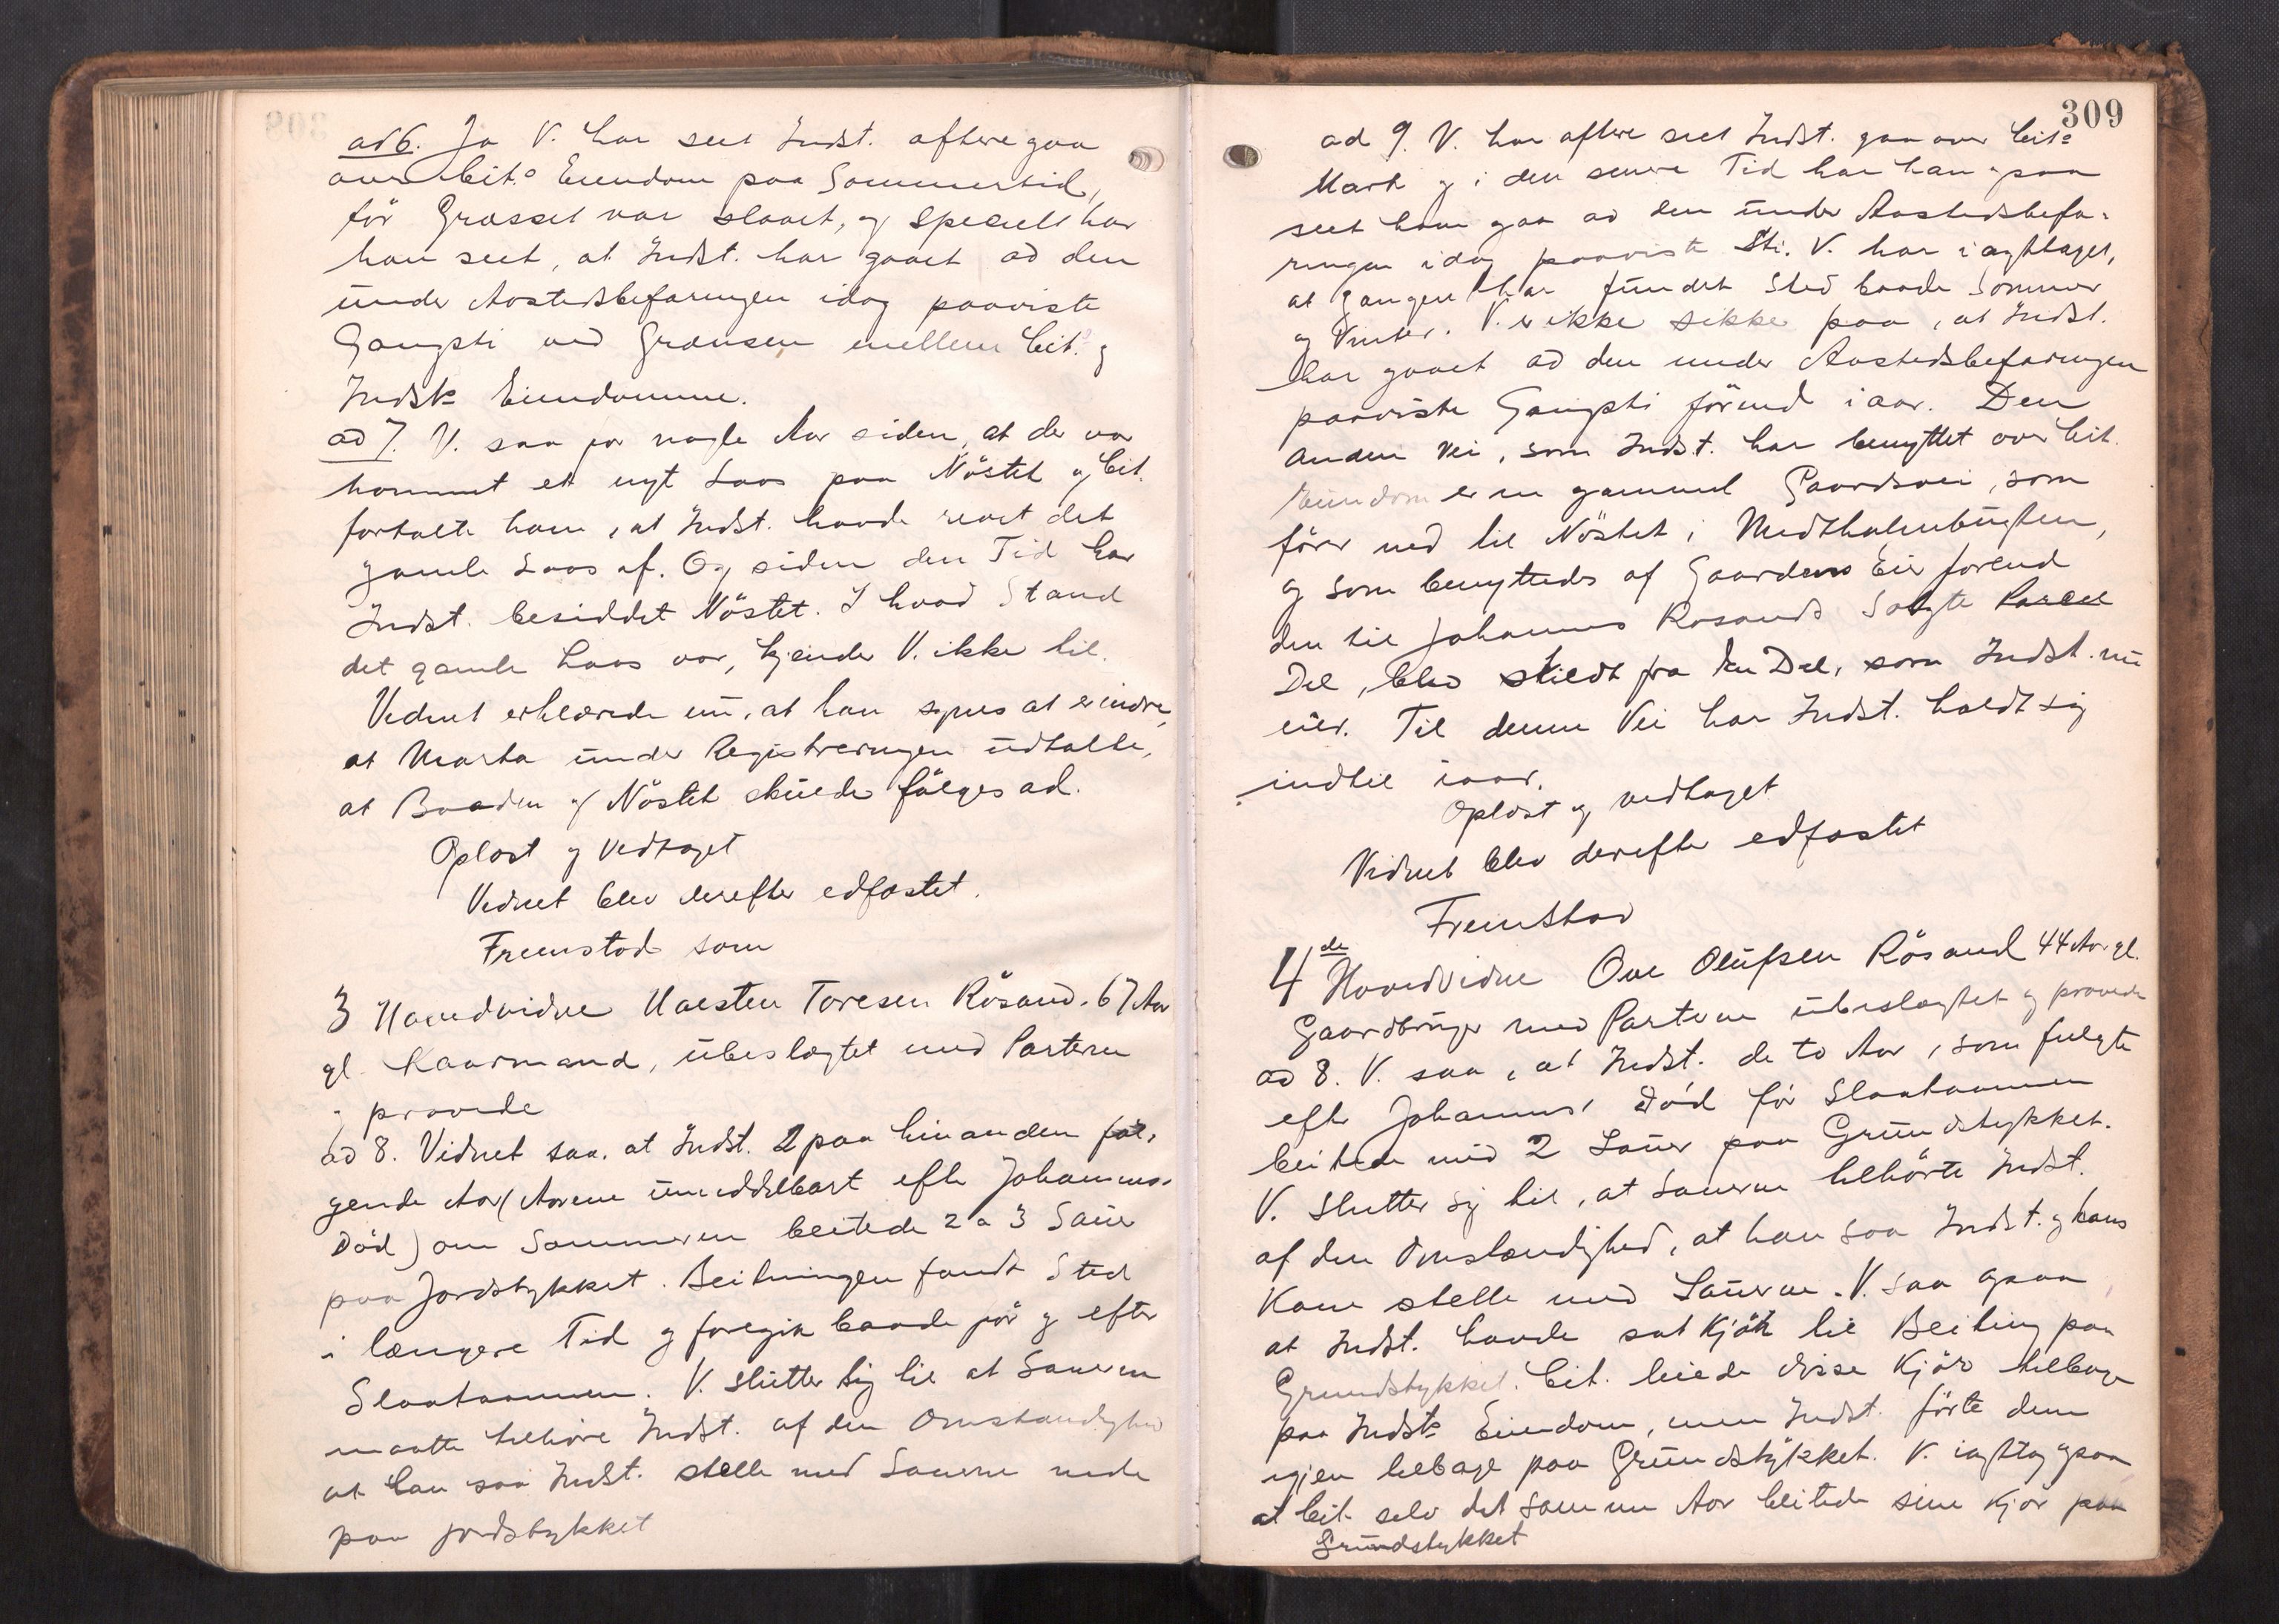 ad 6. Ja V. har seet Indst. oftere gaa
over Cits Eiendom paa Sommertid,
før Græsset var slaaet, og specielt har
han seet, at Indst. har gaaet ad den
under Aastedsbefaringen idag paaviste
Gangsti ved Grænsen mellem Cits og
Indsts Eiendomme.
ad 7. V. saa for nogle Aar siden, at der var
kommet et nyt Laas paa Nøstet og Cit.
fortalte ham, at Indst. havde revet det
gamle Laas af. Og siden den Tid har
Indst. besiddet Nøstet. I hvad Stand
det gamle Laas var, kjender V. ikke til.
Vidnet erklærede nu, at han synes at erindre,
at Marta under Registreringen udtalte,
at Baaden og Nøstet skulde følges ad.
Oplæst og vedtaget
Vidnet blev derefter edfæstet.
Fremstod som
3 Hovedvidne Karsten Toresen Røsand. 67 Aar
gl. Kaarmand, ubeslægtet med Parterne
og provede
ad 8. Vidnet saa, at Indst. 2 paa hinanden føl-
gende Aar (Aarene umiddelbart efter Johannes's
Død) om Sommeren beitede 2 a 3 Sauer
paa Jordstykket. Beitningen fandt Sted
i længere Tid og foregik baade før og efter
Slaataannen. V. slutter sig til at Sauerne
maatte tilhøre Indst. af den Omstændighed
at han saa Indst. stelle med Sauerne nede
paa Jordstykket
309
ad 9. V. har oftere seet Indst. gaa over Cits
Mark og i den senere Tid har han ogsaa
seet ham gaa ad den under Aastedsbefa-
ringen idag paaviste Sti. V. har iagttaget,
at Gangen har fundet Sted baade Sommer
og Vinter. V. er ikke sikker paa, at Indst.
har gaaet ad den under Aastedsbefaringen
paaviste Gangsti førend iaar. Den
anden Vei, som Indst. har benyttet over Cit.
Eiendom er en gammel Gaardsvei, som
fører ned til Nøstet i Medthalenbugten,
og som benyttedes af Gaardens Eier forend
den til Johannes Røsands Solgte Parcel
Del, blev skildt fra den Del, som Indst. nu
eier. Til denne Vei har Indst. holdt sig
indtil iaar.
Oplæst og vedtaget
Vidnet blev derefter edfæstet
Fremstod
4de Hovedvidne Ove Olufsen Røsand 44 Aar gl.
Gaardbruger med Parterne ubeslægtet og provede
ad 8. V. saa, at Indst. de to Aar, som fulgte
efter Johannes' Død før Slaataannen
beitede med 2 Sauer paa Grundstykket.
V. slutter sig til, at Sauerne tilhørte Indst.
af den Omstændighed, at han saa Indst. og hans
Kone stelle med Sauerne. V. saa ogsaa
at Indst. havde sat Kjør til Beiting paa
Grundstykket. Cit. leiede disse Kjør tilbage
paa Indsts Eiendom, men Indst. førte dem
igjen tilbage paa Grundstykket. V. iagttog ogsaa
at Cit. selv det samme Aar beitede sine Kjør paa
Grundstykket